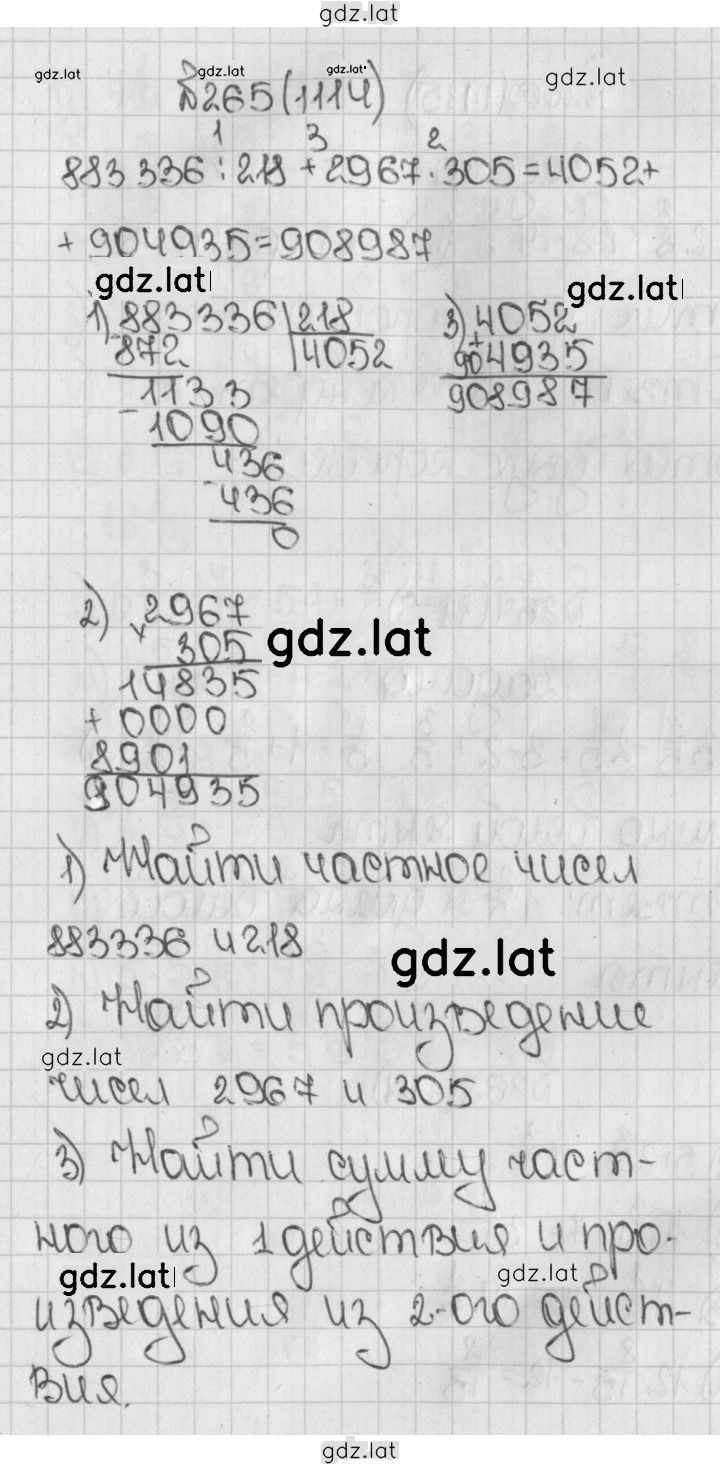 gdz.lat
gdz.lat gdz.lat gdz.lat gdz.lat
№265(1114)
1 3 2
883 336 : 218 + 2967 · 305 = 4052 +
+ 904935 = 908987
gdz.lat gdz.lat
1) 883336 | 218
- 872 | 4052
1133
- 1090
436
- 436
0
3) 4052
+ 904935
908987
2) 2967
× 305 gdz.lat
14835
+ 0000
8901
904935
1) Найти частное чисел
883336 и 218
gdz.lat
2) Найти произведение
gdz.lat
чисел 2967 и 305
3) Найти сумму част-
ного из 1 действия и про-
gdz.lat gdz.lat
изведения из 2-ого дейст-
вия.
gdz.lat